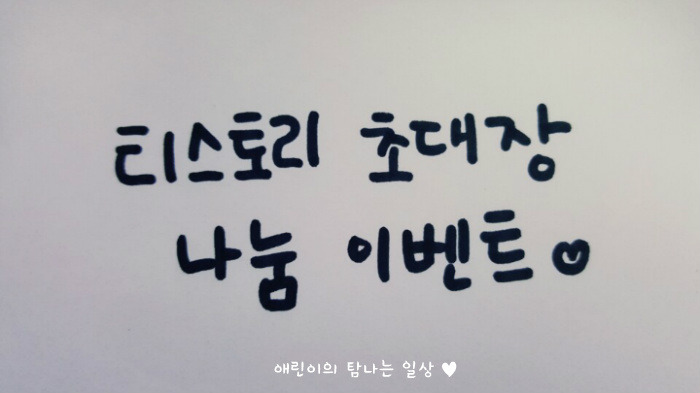 티스토리 초대장
나눔 이벤트♥
애린이의 탐나는 일상 ♥